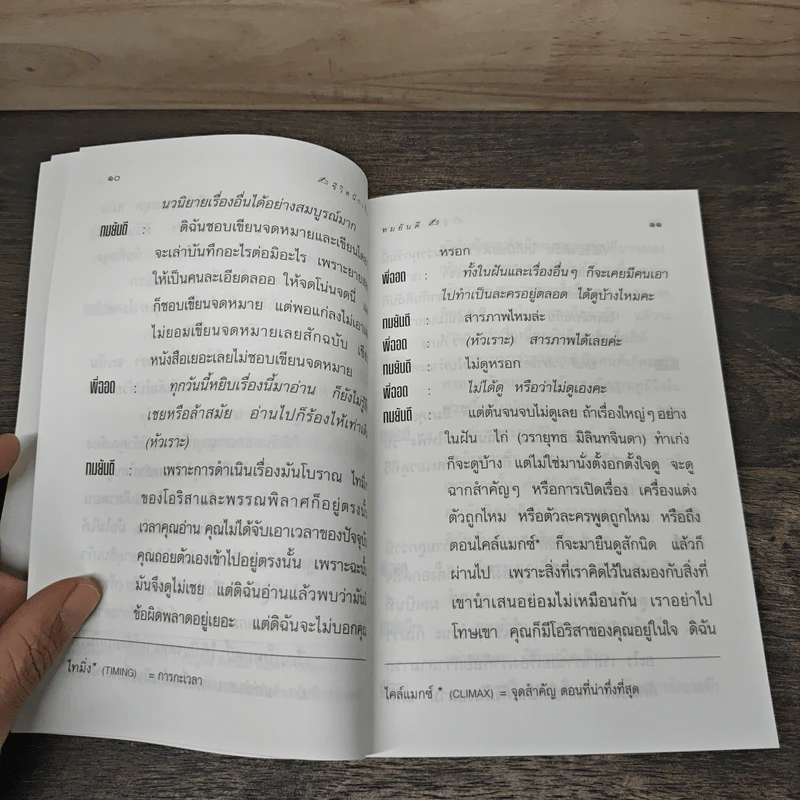 ๑๐
นวนิยายเรื่องอื่นได้อย่างสมบูรณ์มาก
ทมยันตี : ดิฉันชอบเขียนจดหมายและเขียน
จะเล่าบันทึกอะไรต่อมิอะไร เพราะยาย
ให้เป็นคนละเอียดลออ ให้จดโน่นจดนี่
ก็ชอบเขียนจดหมาย แต่พอแก่ลงไม่เอา
ไม่ยอมเขียนจดหมายเลยสักฉบับ
หนังสือเยอะเลยไม่ชอบเขียนจดหมาย
พี่ออด : ทุกวันนี้หยิบเรื่องนี้มาอ่าน ก็ยังไม่รู้สึก
เชยหรือล้าสมัย อ่านไปก็ร้องไห้เท่าเดิม
(หัวเราะ)
ทมยันตี : เพราะการดำเนินเรื่องมันโบราณ ไทมิ่ง*
ของโอริสาและพรรณพิลาศก็อยู่ตรงนั้น
เวลาคุณอ่าน คุณไม่ได้จับเอาเวลาของปัจจุบัน
คุณถอยตัวเองเข้าไปอยู่ตรงนั้น เพราะฉะนั้น
มันจึงดูไม่เชย แต่ดิฉันอ่านแล้วพบว่ามันมี
ข้อผิดพลาดอยู่เยอะ แต่ดิฉันจะไม่บอกคุณ
ไทมิ่ง* (TIMING) = การกะเวลา
ทมยันตี
๑๑
หรอก
พี่ออด : ทั้งในฝันและเรื่องอื่นๆ ก็จะเคยมีคนเอา
ไปทำเป็นละครอยู่ตลอด ได้ดูบ้างไหมคะ
ทมยันตี : สารภาพไหมล่ะ
พี่ออด : (หัวเราะ) สารภาพได้เลยค่ะ
ทมยันตี : ไม่ดูหรอก
พี่ออด : ไม่ได้ดู หรือว่าไม่ดูเองคะ
ทมยันตี : แต่ต้นจนจบไม่ดูเลย ถ้าเรื่องใหญ่ๆ อย่าง
ในฝัน ไก่ (วรายุทธ มิลินทจินดา) ทำเก่ง
ก็จะดูบ้าง แต่ไม่ใช่มานั่งตั้งอกตั้งใจดู จะดู
ฉากสำคัญๆ หรือการเปิดเรื่อง เครื่องแต่ง
ตัวถูกไหม หรือตัวละครพูดถูกไหม หรือถึง
ตอนไคล์แมกซ์* ก็จะมายืนดูสักนิด แล้วก็
ผ่านไป เพราะสิ่งที่เราคิดไว้ในสมองกับสิ่งที่
เขานำเสนอย่อมไม่เหมือนกัน เราอย่าไป
โทษเขา คุณก็มีโอริสาของคุณอยู่ในใจ ดิฉัน
ไคล์แมกซ์ * (CLIMAX) = จุดสำคัญ ตอนที่น่าทึ่งที่สุด